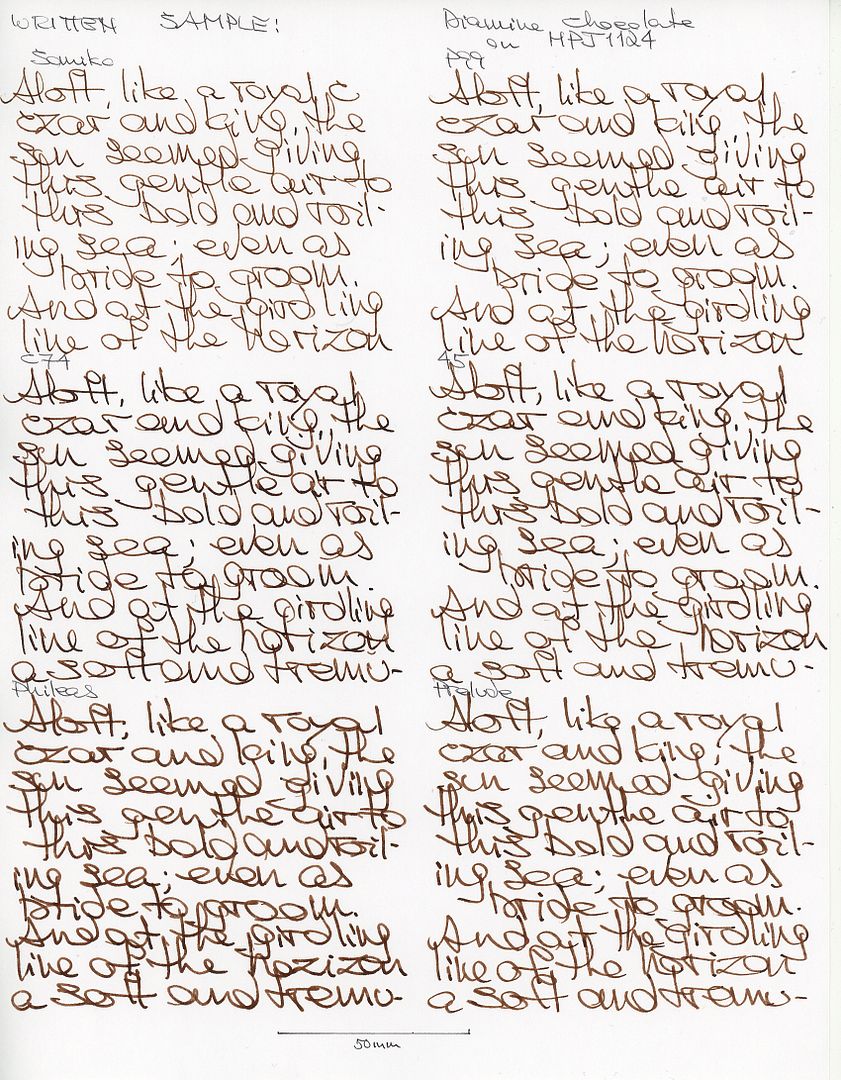 WRITTEN SAMPLE:
Diamine Chocolate
on HPJ1124
Samiko
Aloft, like a royal c
czar and king, the
sun seemed giving
this gentle air to
this bold and roil-
ing sea; even as
bride to groom.
And at the girdling
line of the horizon
P99
Aloft, like a royal
czar and king, the
sun seemed giving
this gentle air to
this bold and roil-
ing sea; even as
bride to groom.
And at the girdling
line of the horizon
C74
Aloft, like a royal
czar and king, the
sun seemed giving
this gentle air to
this bold and roil-
ing sea; even as
bride to groom.
And at the girdling
line of the horizon
a soft and tremu-
45
Aloft, like a royal
czar and king, the
sun seemed giving
this gentle air to
this bold and roil-
ing sea; even as
bride to groom.
And at the girdling
line of the horizon
a soft and tremu-
Phileas
Aloft, like a royal
czar and king, the
sun seemed giving
this gentle air to
this bold and roil-
ing sea; even as
bride to groom.
And at the girdling
line of the horizon
a soft and tremu-
Prelude
Aloft, like a royal
czar and king, the
sun seemed giving
this gentle air to
this bold and roil-
ing sea; even as
bride to groom.
And at the girdling
line of the horizon
a soft and tremu-
50mm